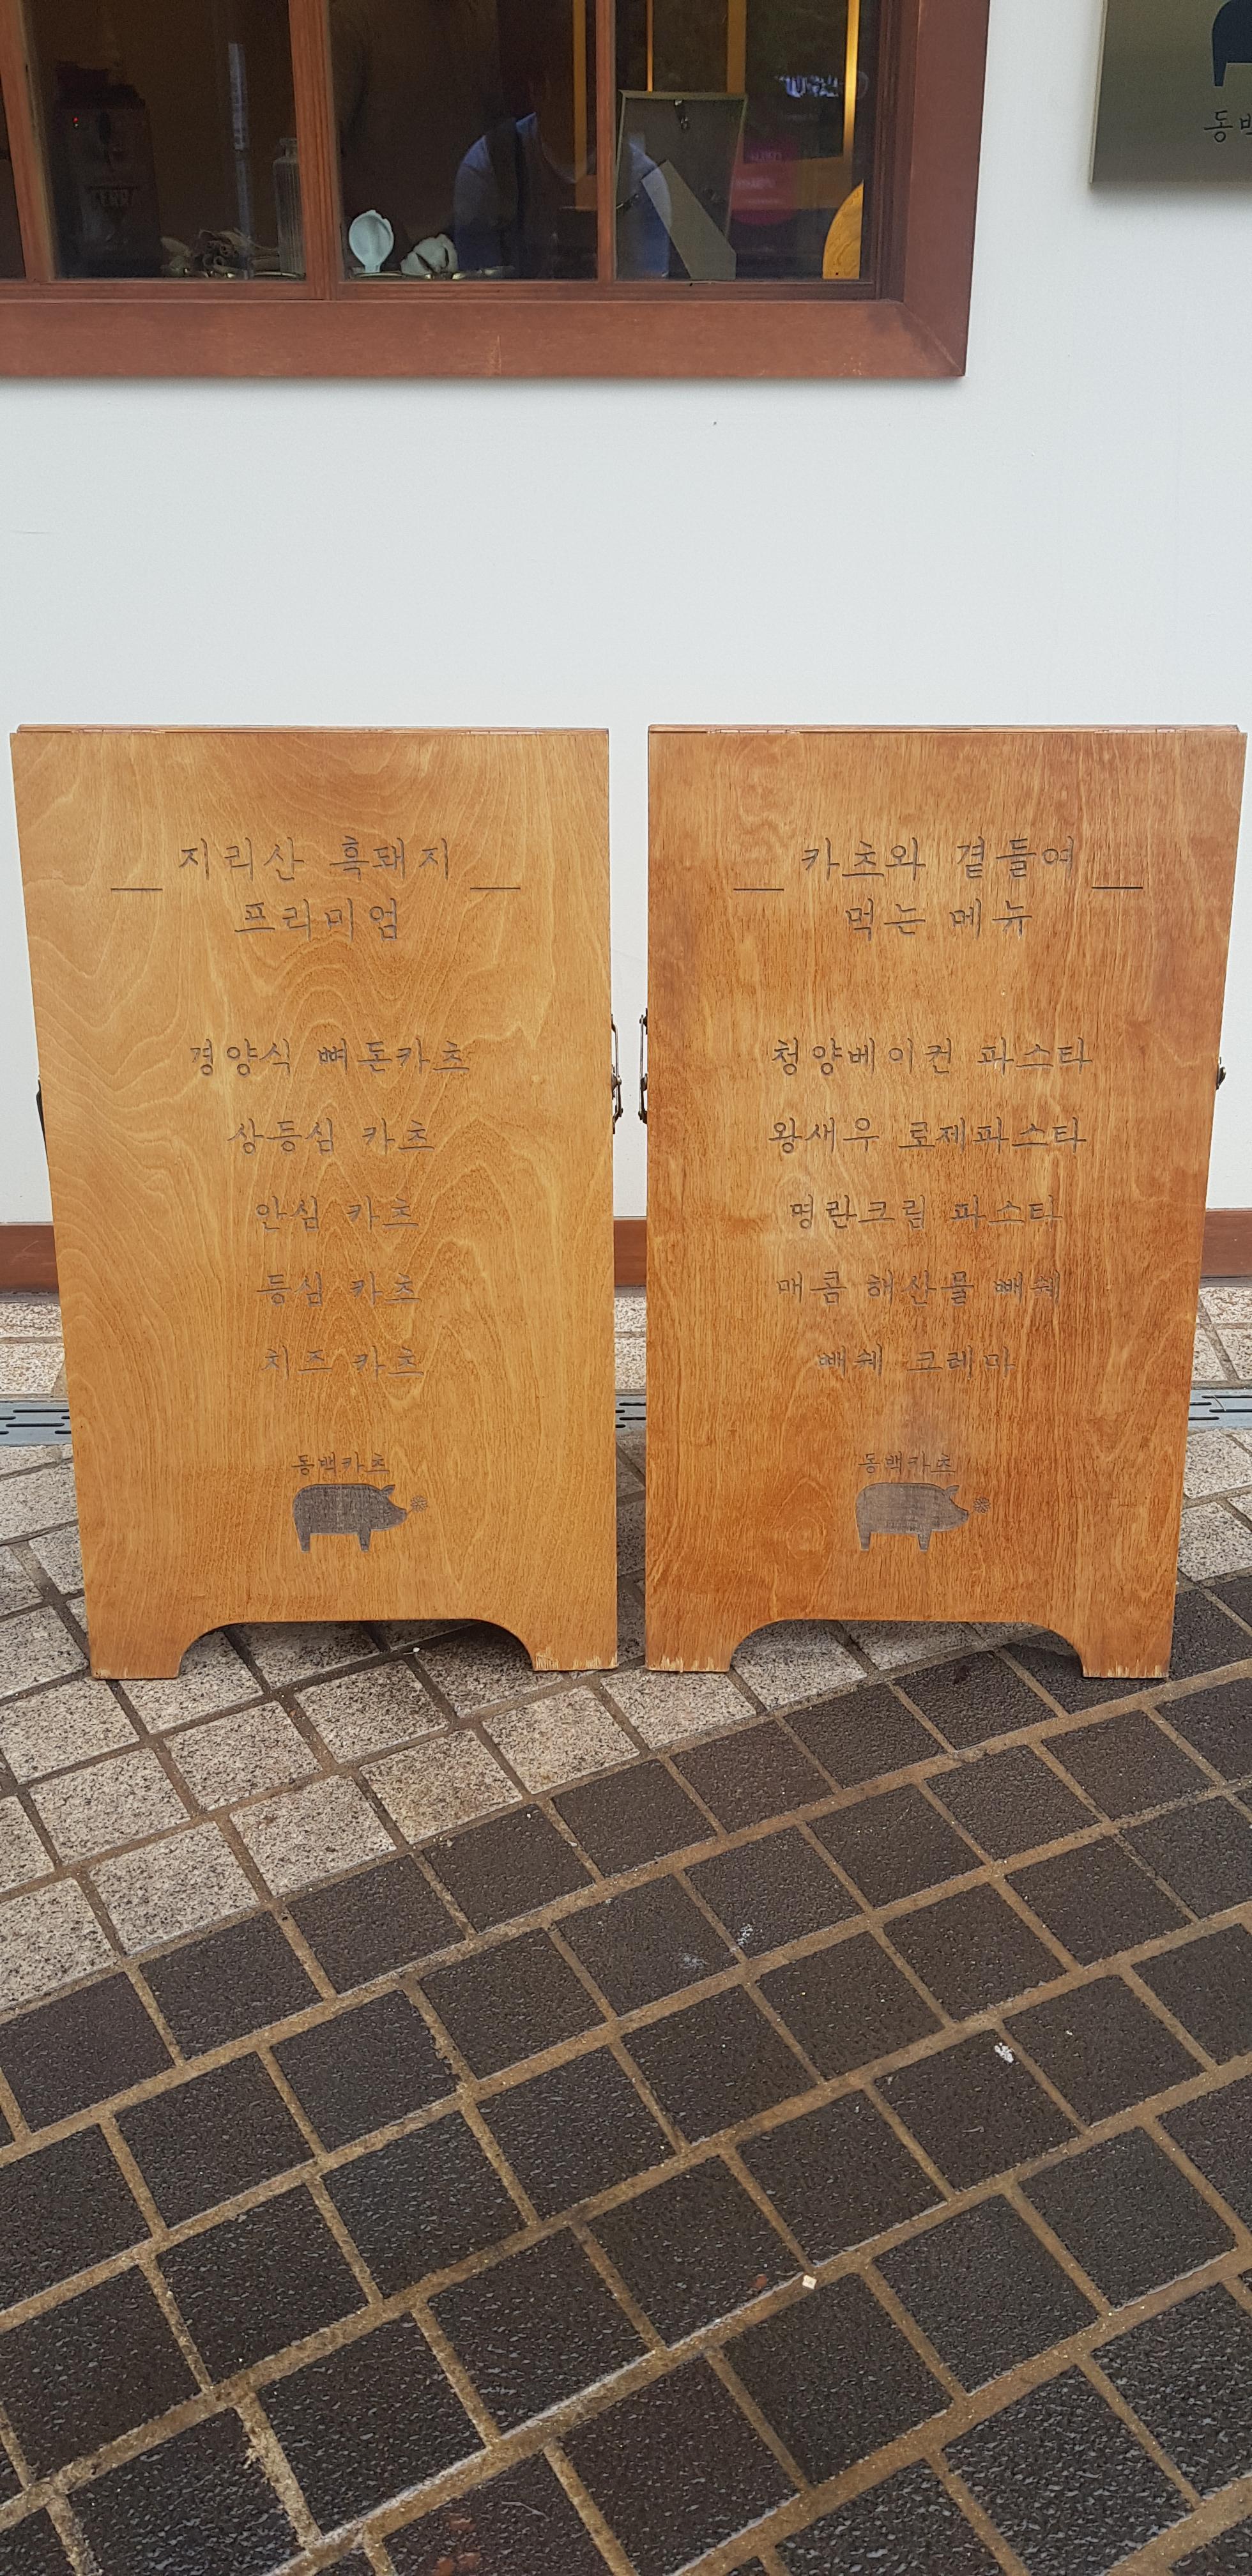 TERRA
지리산 흑돼지
프리미엄
경양식 뼈돈카츠
상등심 카츠
안심 카츠
등심 카츠
치즈 카츠
동백카츠
카츠와 곁들여
먹는 메뉴
청양베이컨 파스타
왕새우 로제파스타
명란크림 파스타
매콤 해산물 빼쉐
빼쉐 크레마
동백카츠